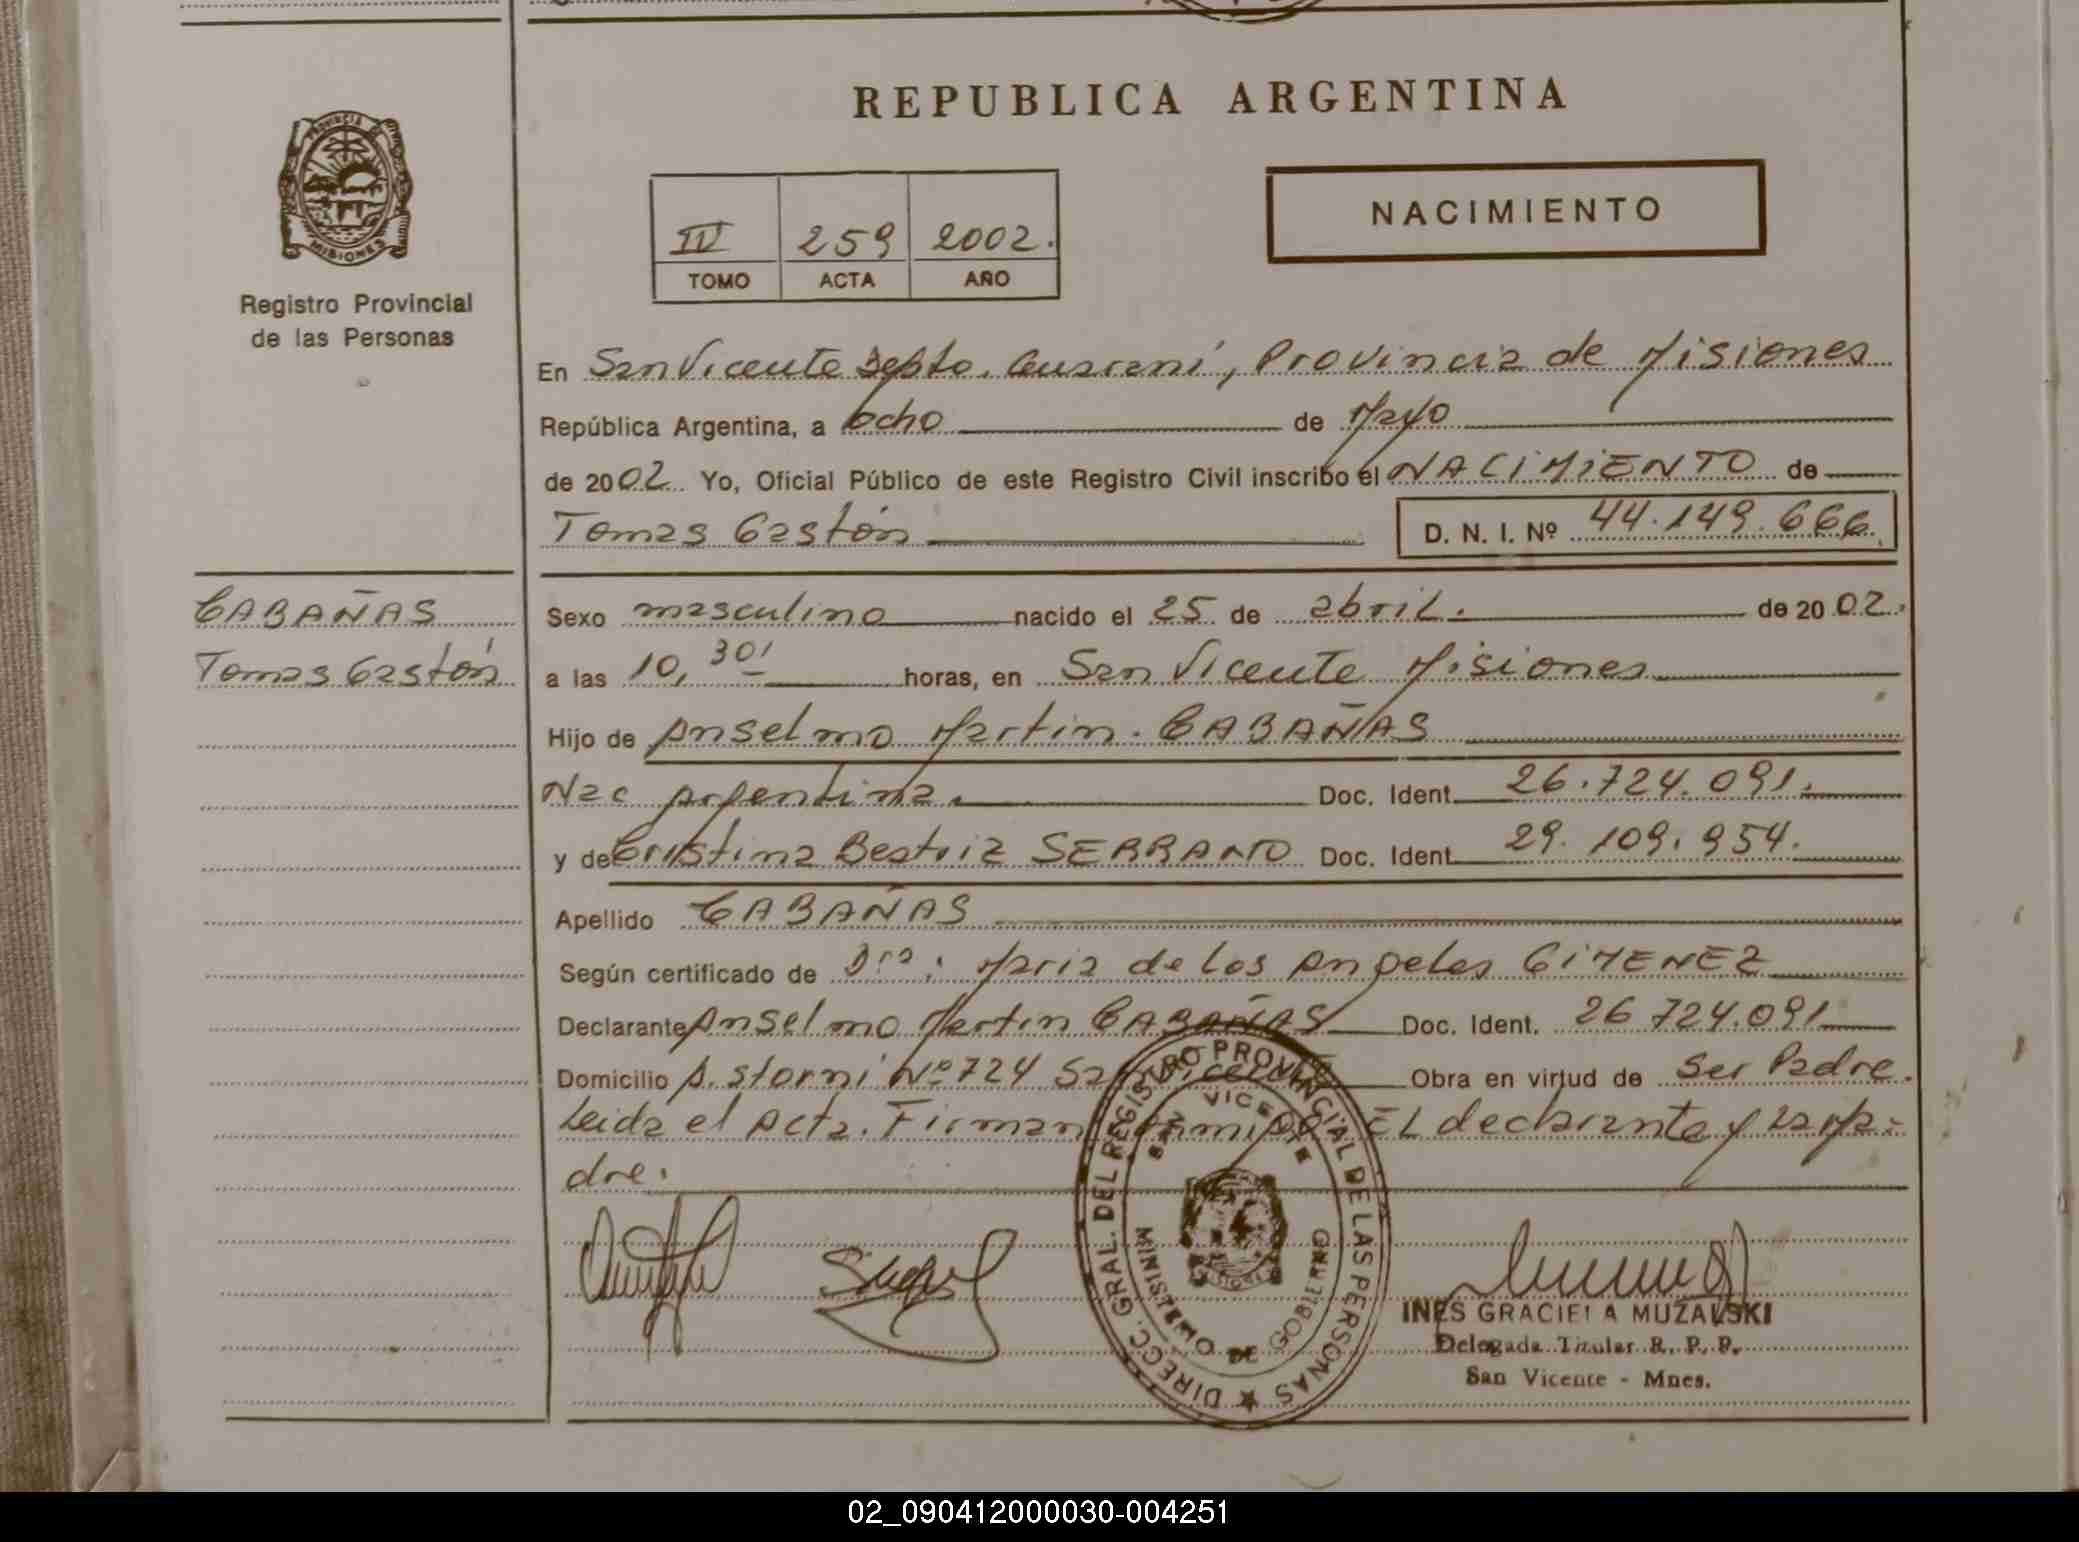 REPUBLICA ARGENTINA
PROVINCIA DE
MISIONES
Registro Provincial
de las Personas
IV 259 2002.
TOMO ACTA AÑO
NACIMIENTO
En San Vicente Depto. Guaraní, Provincia de Misiones
República Argentina, a ocho de Mayo
de 2002 Yo, Oficial Público de este Registro Civil inscribo el NACIMIENTO de
Tomas Gastón D. N. I. Nº 44.149.666
CABAÑAS
Tomas Gastón
Sexo masculino nacido el 25 de abril. de 2002.
a las 10,30' horas, en San Vicente Misiones
Hijo de Anselmo Martin. CABAÑAS
Nac Argentina. Doc. Ident. 26.724.091.
y de Cristina Beatriz SERRANO Doc. Ident. 29.109.954.
Apellido CABAÑAS
Según certificado de Dra: Maria de los Angeles GIMENEZ
Declarante Anselmo Martin CABAÑAS Doc. Ident. 26724.091
Domicilio A. Storni Nº 724 San Vicente Obra en virtud de Ser Padre.
Leida el Acta. Firman conmigo EL declarante y la ma-
dre.
DIRECC. GRAL. DEL REGISTRO PROVINCIAL DE LAS PERSONAS
SAN VICENTE
MINISTERIO DE GOBIERNO
INES GRACIELA MUZALSKI
Delegada Titular R. P. P.
San Vicente - Mnes.
02_090412000030-004251